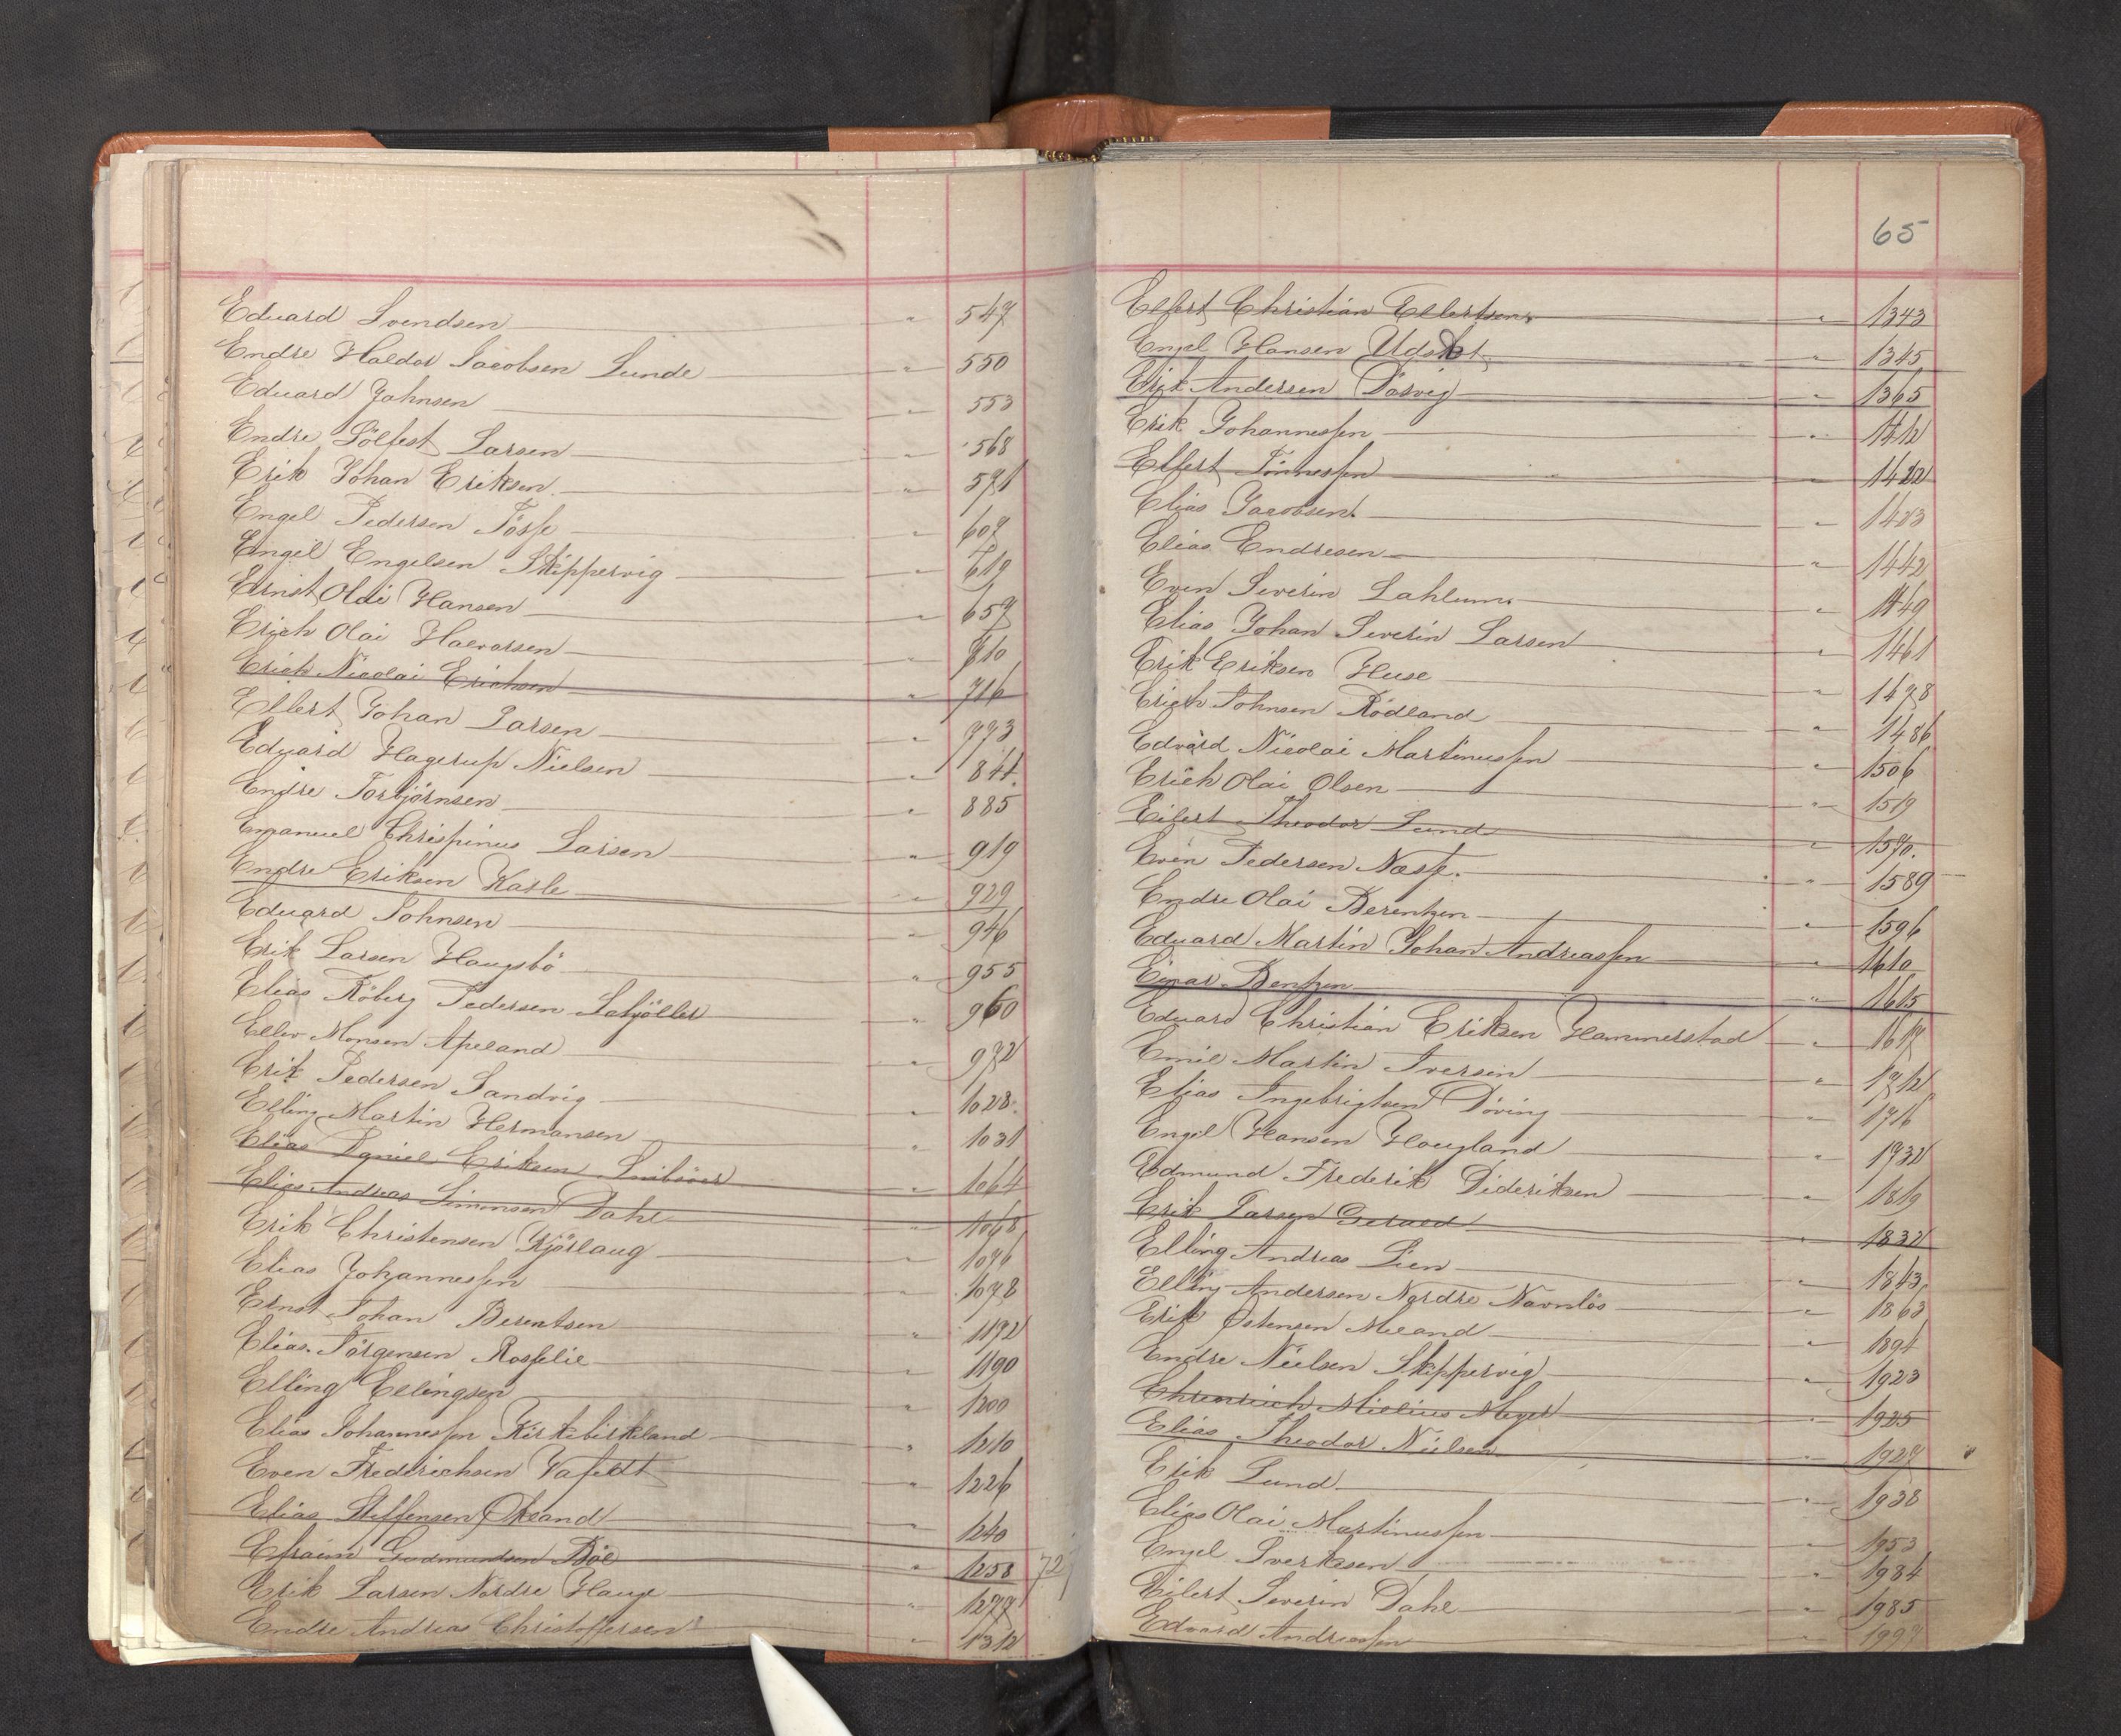 Eduard Svendsen " 547
Endre Haldor Jacobsen Lunde " 550
Eduard Johnsen " 553
Endre Sölfest Larsen " 568
Erik Johan Eriksen " 571
Engel Pedersen Tösse " 607
Engel Engelsen Skippervig " 619
Ernst Olai Hansen " 657
Erich Olai Halvorsen " 710
Erich Nicolai Erichsen " 716
Ellert Johan Larsen " 773
Eduard Hagerup Nielsen " 841
Endre Torbjörnsen " 885
Emanuel Chrispinus Larsen " 919
Endre Eriksen Karle " 929
Eduard Johnsen " 946
Erik Larsen Haugsbö " 955
Elias Röberg Pedersen " 960
Ellev Monsen Apeland " 972
Erik Pedersen Sandvig " 1028
Elling Martin Hermansen " 1031
Elias Daniel Eriksen " 1064
Elias Andreas Simonsen Dahl " 1068
Erik Christensen Gjörlaug " 1076
Elias Johannessen " 1078
Ernst Johan Berentsen " 1192
Elias Jörgensen Rosselie " 1190
Elling Ellingsen " 1200
Elias Johannessen Kirkebirkeland " 1210
Even Frederichsen Vafeldt " 1226
Elias Steffensen Økland " 1240
Efraim Gudmundsen Böe " 1258 727
Erik Larsen Nordre Hauge " 1277
Endre Andreas Christoffersen " 1312
65
Ellert Christian Ellertsen " 1343
Engel Hansen Udsæt " 1345
Erik Andersen Dösvig " 1365
Erik Johannessen " 1412
Elfert Tönnessen " 1422
Elias Jacobsen " 1423
Elias Endresen " 1442
Even Severin Lahlum " 1449
Elias Johan Severin Larsen " 1461
Erik Eriksen Huse " 1478
Erich Johnsen Rödland " 1486
Edvard Nicolai Martinussen " 1506
Erich Olai Olsen " 1519
Eilert Theodor Lund " 1570.
Even Pedersen Næss. " 1589
Endre Olai Berentzen " 1596
Eduard Martin Johan Andreassen " 1610
Einar Bentzen " 1615
Eduard Christian Eriksen Hammerstad " 1617
Emil Martin Iversen " 1712
Elias Ingebrigtsen Döving " 1716
Engel Hansen Hougland " 1732
Edmund Frederik Dideriksen " 1819
Erik Larsen " 1832
Elling Andreas Lien " 1843
Elling Andersen Nordre Navnlös " 1863
Erik Östensen Meland " 1894
Endre Nielsen Skippervig " 1923
Ehrenreich Mielius Meyer " 1925
Elias Theodor Nielsen " 1927
Erik Lund " 1938
Elias Olai Martinussen " 1953
Engel Sverkesen " 1984
Eilert Severin Dahl " 1985
Edvard Andreassen " 1997